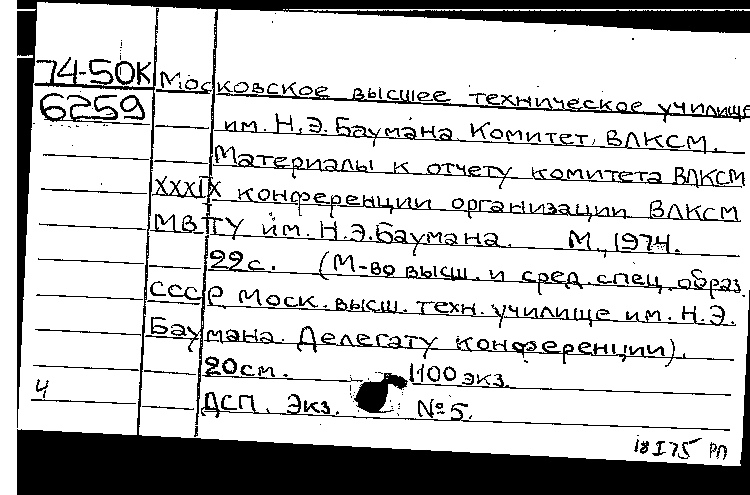 74-50К Московское высшее техническое училище
6259 им. Н.Э.Баумана. Комитет ВЛКСМ.
Материалы к отчету комитета ВЛКСМ
XXXIX конференции организации ВЛКСМ
МВТУ им. Н.Э.Баумана. М., 1974.
22с. (М-во высш. и сред. спец. образ.
СССР. Моск. высш. техн. училище им. Н.Э.
Баумана. Делегату конференции).
20см. 1100 экз.
4 ДСП. Экз. №5.
18 I 75 РП